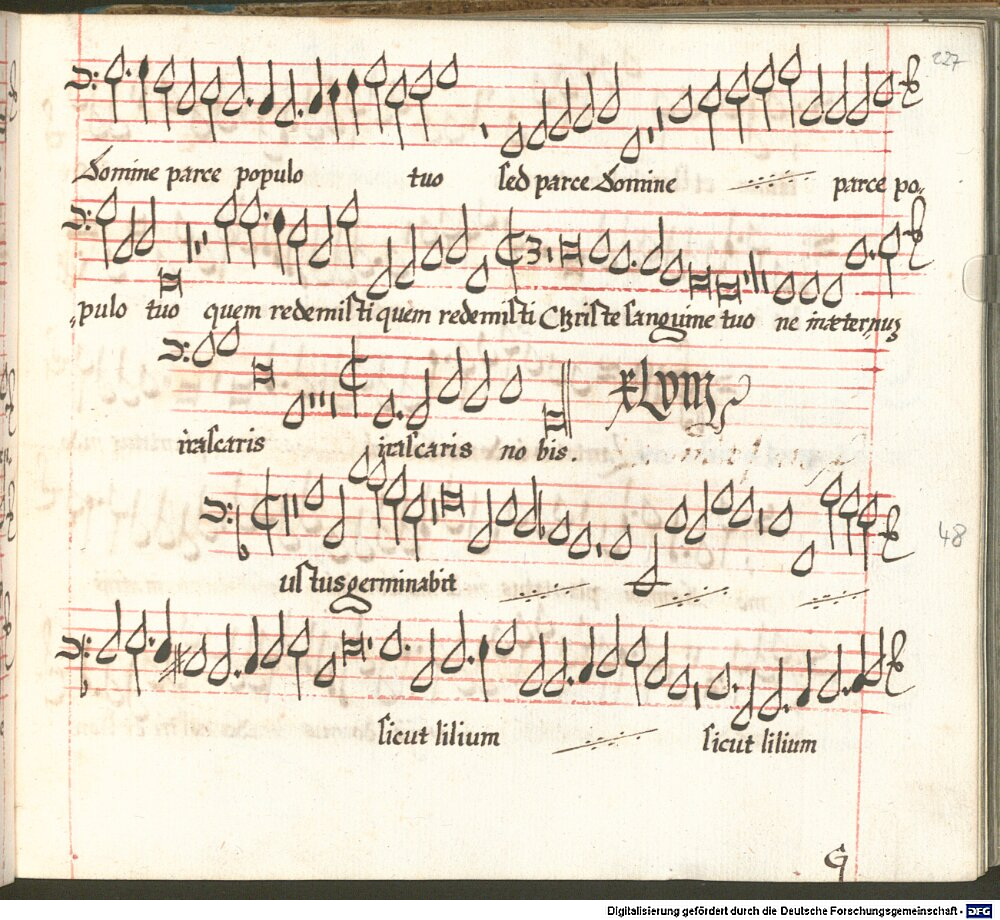 227
Domine parce populo tuo sed parce Domine parce po„
„pulo tuo quem redemisti quem redemisti Christe sanguine tuo ne inæternuz
irascaris irascaris no bis.
xlviij
48
ustus germinabit
sicut lilium sicut lilium
G
Digitalisierung gefördert durch die Deutsche Forschungsgemeinschaft - DFG